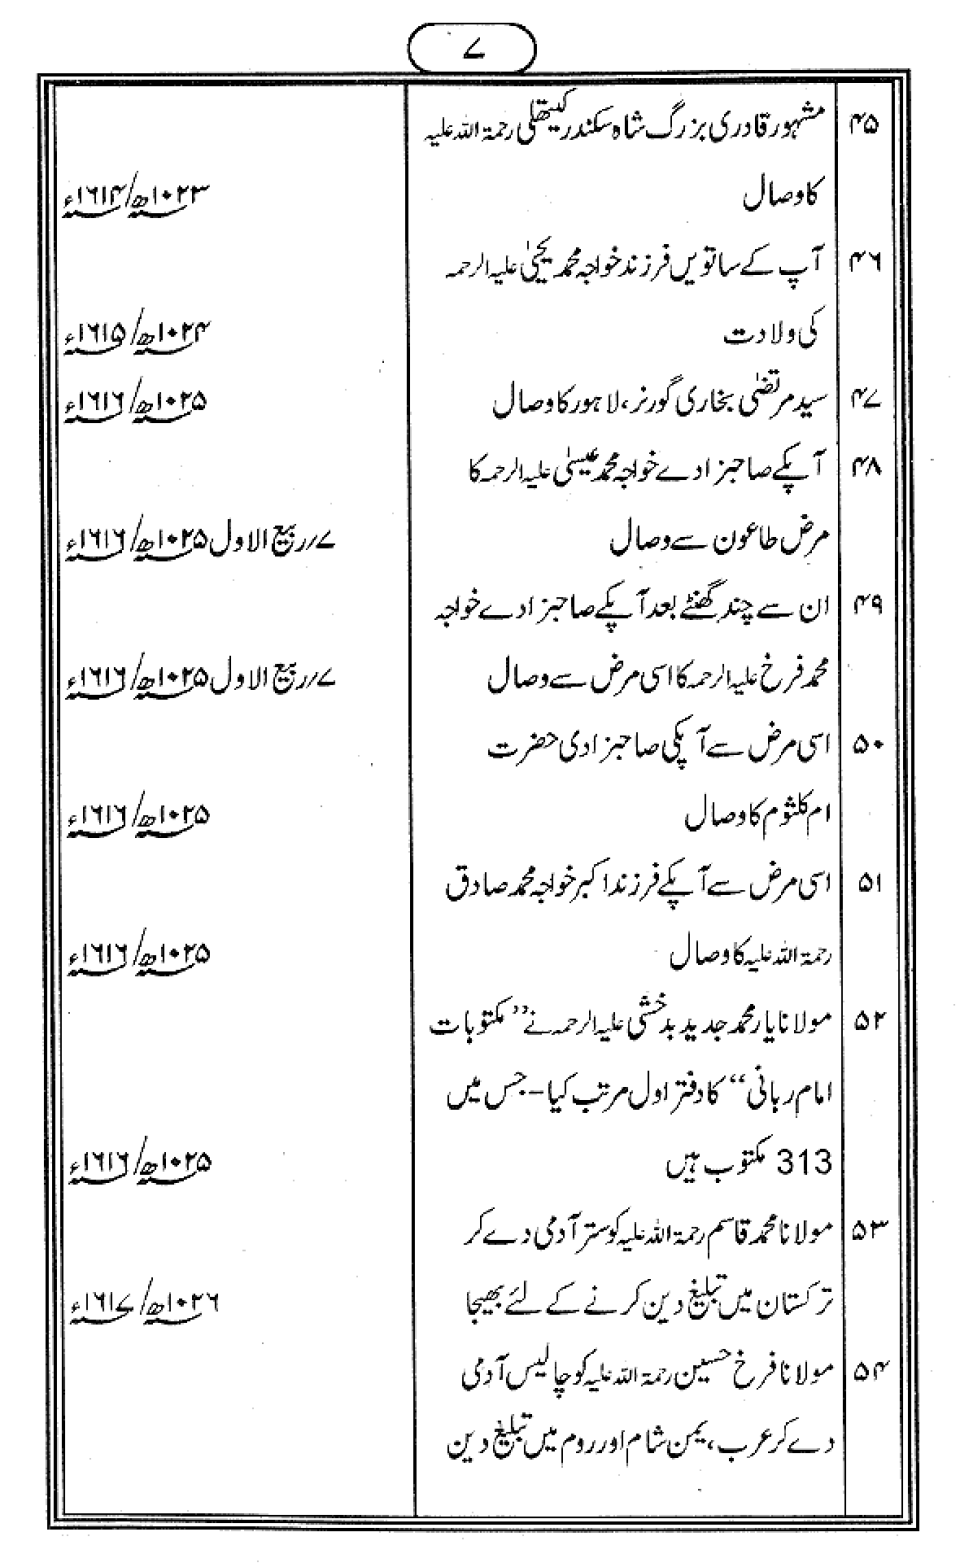 ۷
۴۵ مشہور قادری بزرگ شاہ سکندر کیتھلی رحمۃ اللہ علیہ
کا وصال ۱۰۲۳ھ/۱۶۱۴ء
۴۶ آپ کے ساتویں فرزند خواجہ محمد یحییٰ علیہ الرحمہ
کی ولادت ۱۰۲۴ھ/۱۶۱۵ء
۴۷ سید مرتضیٰ بخاری گورنر، لاہور کا وصال ۱۰۲۵ھ/۱۶۱۶ء
۴۸ آپکے صاحبزادے خواجہ محمد عیسیٰ علیہ الرحمہ کا
مرض طاعون سے وصال ۷/ربیع الاول ۱۰۲۵ھ/۱۶۱۶ء
۴۹ ان سے چند گھنٹے بعد آپکے صاحبزادے خواجہ
محمد فرخ علیہ الرحمہ کا اسی مرض سے وصال ۷/ربیع الاول ۱۰۲۵ھ/۱۶۱۶ء
۵۰ اسی مرض سے آپکی صاحبزادی حضرت
ام کلثوم کا وصال ۱۰۲۵ھ/۱۶۱۶ء
۵۱ اسی مرض سے آپکے فرزند اکبر خواجہ محمد صادق
رحمۃ اللہ علیہ کا وصال ۱۰۲۵ھ/۱۶۱۶ء
۵۲ مولانا یار محمد جدید بدخشی علیہ الرحمہ نے ’’مکتوبات
امام ربانی‘‘ کا دفتر اول مرتب کیا۔ جس میں
313 مکتوب ہیں ۱۰۲۵ھ/۱۶۱۶ء
۵۳ مولانا محمد قاسم رحمۃ اللہ علیہ کو ستر آدمی دے کر
ترکستان میں تبلیغ دین کرنے کے لئے بھیجا ۱۰۲۶ھ/۱۶۱۷ء
۵۴ مولانا فرخ حسین رحمۃ اللہ علیہ کو چالیس آدمی
دے کر عرب، یمن شام اور روم میں تبلیغ دین